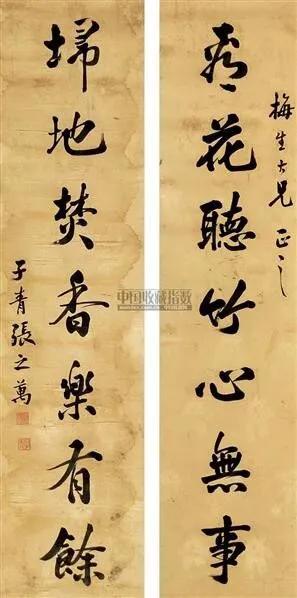 梅生大兄正之
看花聽竹心無事
埽地焚香樂有餘
子青張之萬
中国收藏指数